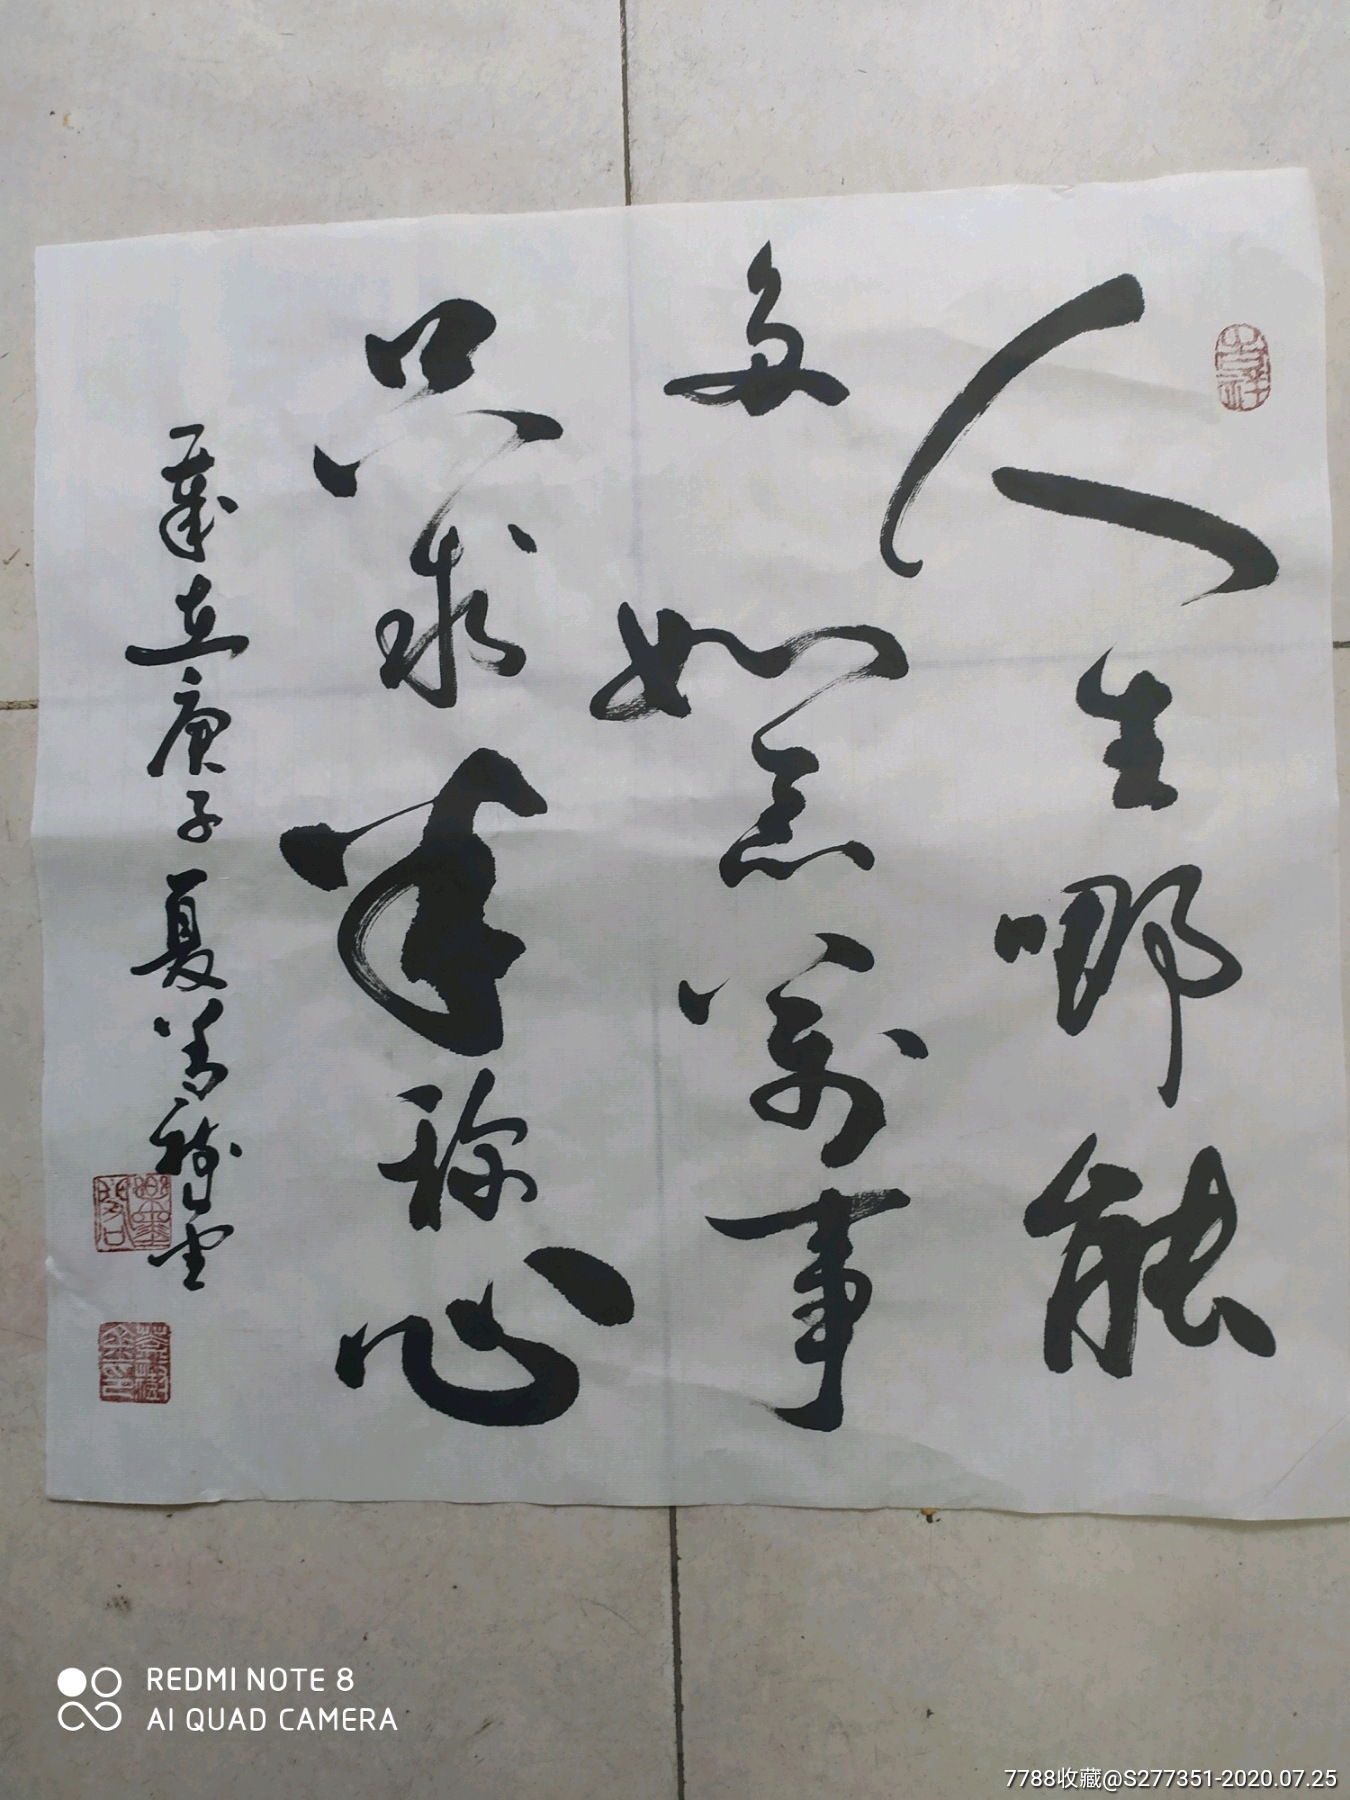 人生哪能
多如意万事
只求半称心
岁在庚子夏
吉祥
REDMI NOTE 8
AI QUAD CAMERA
7788收藏@S277351-2020.07.25